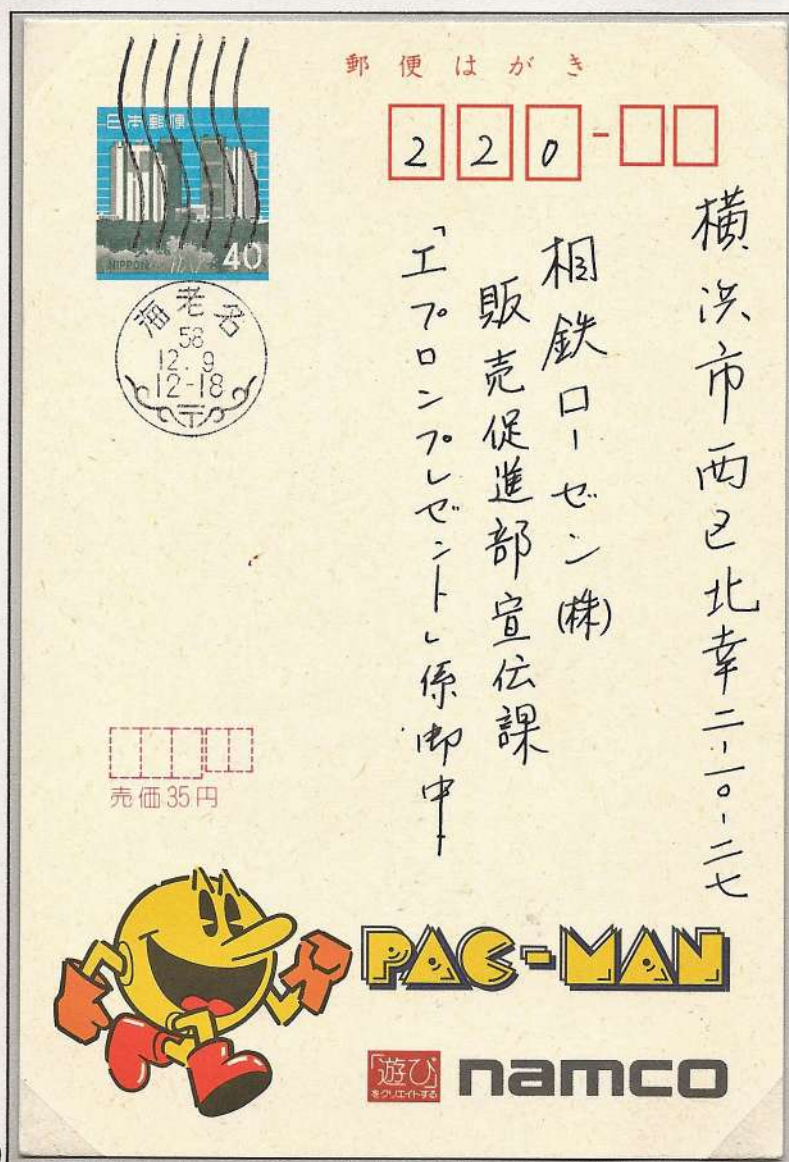 郵便はがき
日本郵便
NIPPON
40
220-
海老名
58
12.9
12-18
横浜市西区北幸二-一〇-二七
相鉄ローゼン(株)
販売促進部宣伝課
「エプロンプレゼント」係御中
売価35円
PAC-MAN
「遊び」
をクリエイトする
namco